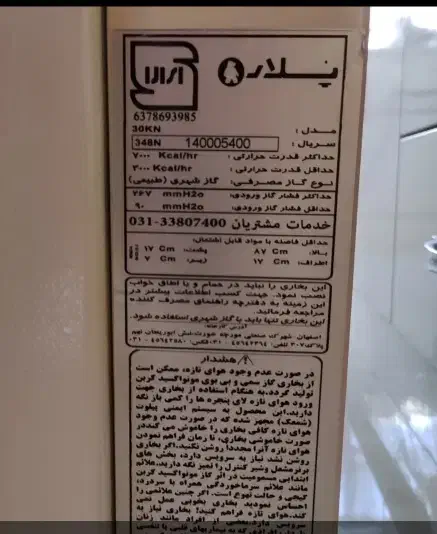 پلار
6378693985
مدل : 30KN
سریال : 348N 140005400
حداکثر قدرت حرارتی : ۷۰۰۰ Kcal/hr
حداقل قدرت حرارتی : ۳۰۰۰ Kcal/hr
نوع گاز مصرفی: گاز شهری (طبیعی)
حداکثر فشار گاز ورودی: ۲۶۷ mmH2o
حداقل فشار گاز ورودی: ۹۰ mmH2o
خدمات مشتریان 33807400-031
حداقل فاصله با مواد قابل اشتعال:
بالا: ۸۷ Cm پشت: ۱۷ Cm
اطراف: ۱۷ Cm زیر: ۷ Cm
این بخاری را نباید در حمام و یا اطاق خواب
نصب نمود. جهت کسب اطلاعات بیشتر در
این زمینه به دفترچه راهنمای مصرف کننده
مراجعه فرمائید.
این بخاری تنها باید با گاز شهری استفاده شود.
آدرس کارخانه:
اصفهان، شهرک صنعتی مورچه خورت،
هشدار
در صورت عدم وجود هوای تازه، ممکن است
از بخاری گاز سمی و بی بوی مونواکسید کربن
تولید گردد. به هنگام استفاده از بخاری جهت
ورود هوای تازه لای پنجره ها را کمی باز نگه
دارید. این محصول به سیستم ایمنی پیلوت
(شمعک) مجهز شده که در صورت عدم وجود
هوای تازه کافی بخاری را خاموش می کند. در
صورت خاموشی بخاری، تا زمان فراهم نمودن
هوای تازه آنرا مجددا روشن نکنید. اگر بخاری
روشن نشد نیاز به سرویس دارد. بخش های
برنر مشعل وشیر کنترل را تمیز نگه دارید. علائم
ابتدایی مسمومیت در اثر گاز مونواکسید کربن
مانند علائم سرماخوردگی همراه با سردرد،
گیجی و حالت تهوع است. اگر چنین علائمی را
احساس نمودید بخاری بخوبی عمل نمی
کند. هوای تازه فراهم کنید! بخاری نیاز به
سرویس دارد. بعضی از افراد مانند زنان